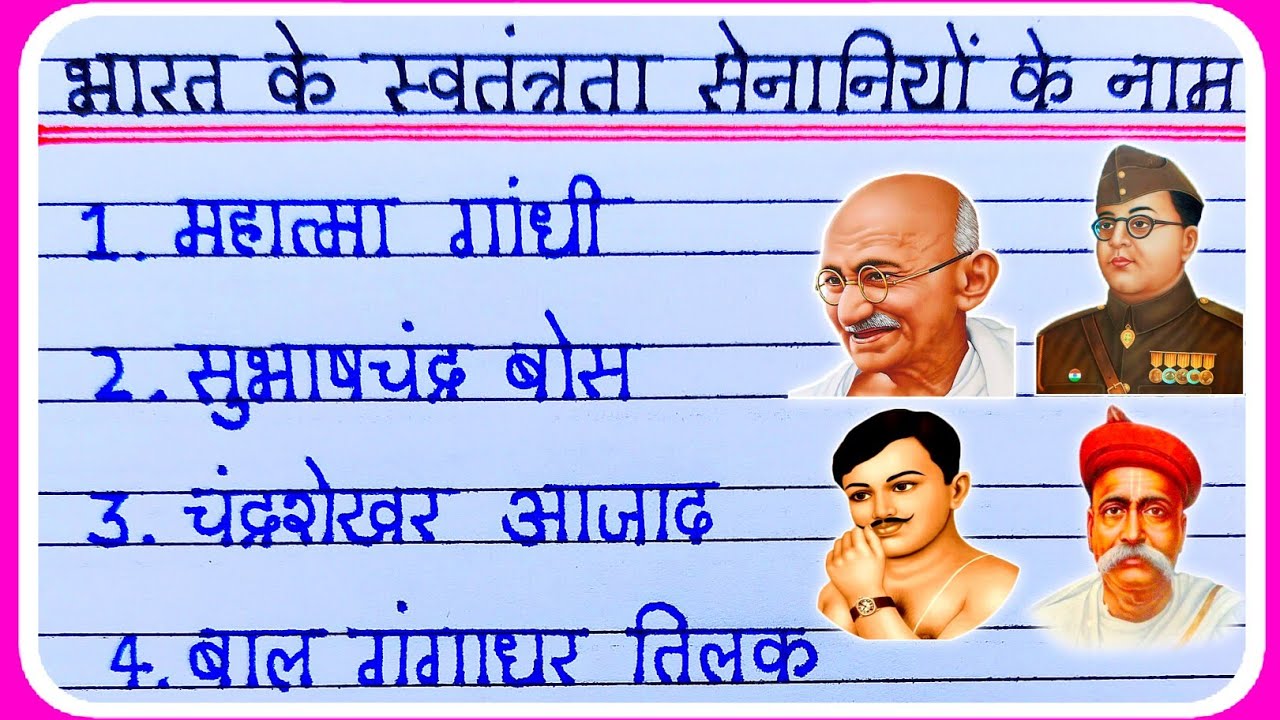 भारत के स्वतंत्रता सेनानियों के नाम
1. महात्मा गांधी
2. सुभाषचंद्र बोस
3. चंद्रशेखर आजाद
4. बाल गंगाधर तिलक